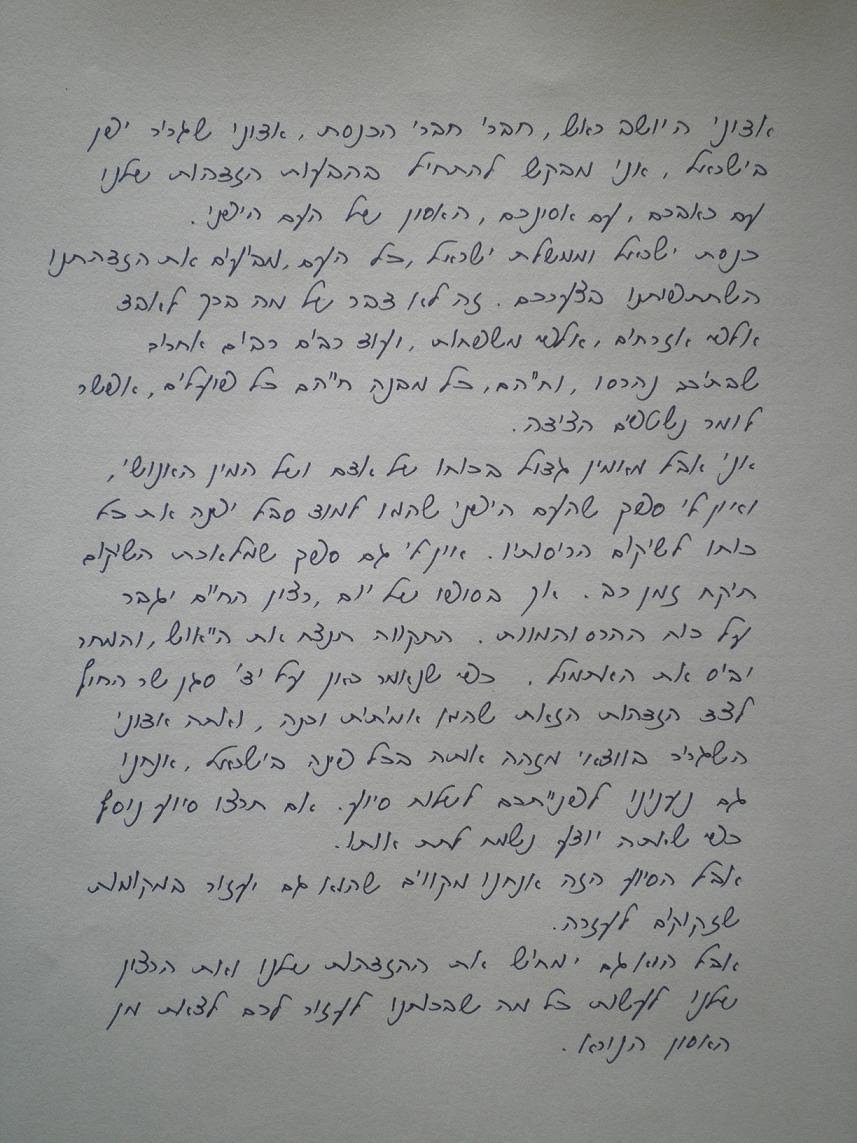 אדוני היושב ראש, חברי חברי הכנסת, אדוני שגריר יפן
בישראל, אני מבקש להתחיל בהבעות הזדהות שלנו
עם כאבכם, עם אסונכם, האסון של העם היפני.
כנסת ישראל וממשלת ישראל, כל העם, מביעים את הזדהותנו
השתתפותנו בצערכם. זה לא דבר של מה בכך לאבד
אלפי אזרחים, אלפי משפחות, ועוד רבים רבים אחרים
שבתיהם נהרסו, וחייהם, כל מבנה חייהם כל פועלים, אפשר
לומר נשטפים הצידה.
אני אבל מאמין גדול בכוחו של אדם ושל המין האנושי,
ואין לי ספק שהעם היפני שהוא למוד סבל יפנה את כל
כוחו לשיקום הריסותיו. אין לי גם ספק שמלאכת השיקום
תיקח זמן רב. אך בסופו של יום, רצון החיים יגבר
על כוח ההרס והמוות. התקווה תנצח את הייאוש, והמחר
יביס את האתמול. כפי שנאמר כאן על ידי סגן שר החוץ
לצד הזדהות הזאת שהיא אמיתית וכנה, ואתה אדוני
השגריר בוודאי מזהה אותה בכל פינה בישראל, אנחנו
גם נענינו לפנייתכם לשלוח סיוע. אם תרצו סיוע נוסף
כפי שאתה יודע נשמח לתת אותו.
אבל הסיוע הזה אנחנו מקווים שהוא גם יעזור במקומות
שזקוקים לעזרה.
אבל הוא גם ימחיש את ההזדהות שלנו ואת הרצון
שלנו לעשות כל מה שבכוחנו לעזור לכם לצאת מן
האסון הנורא.